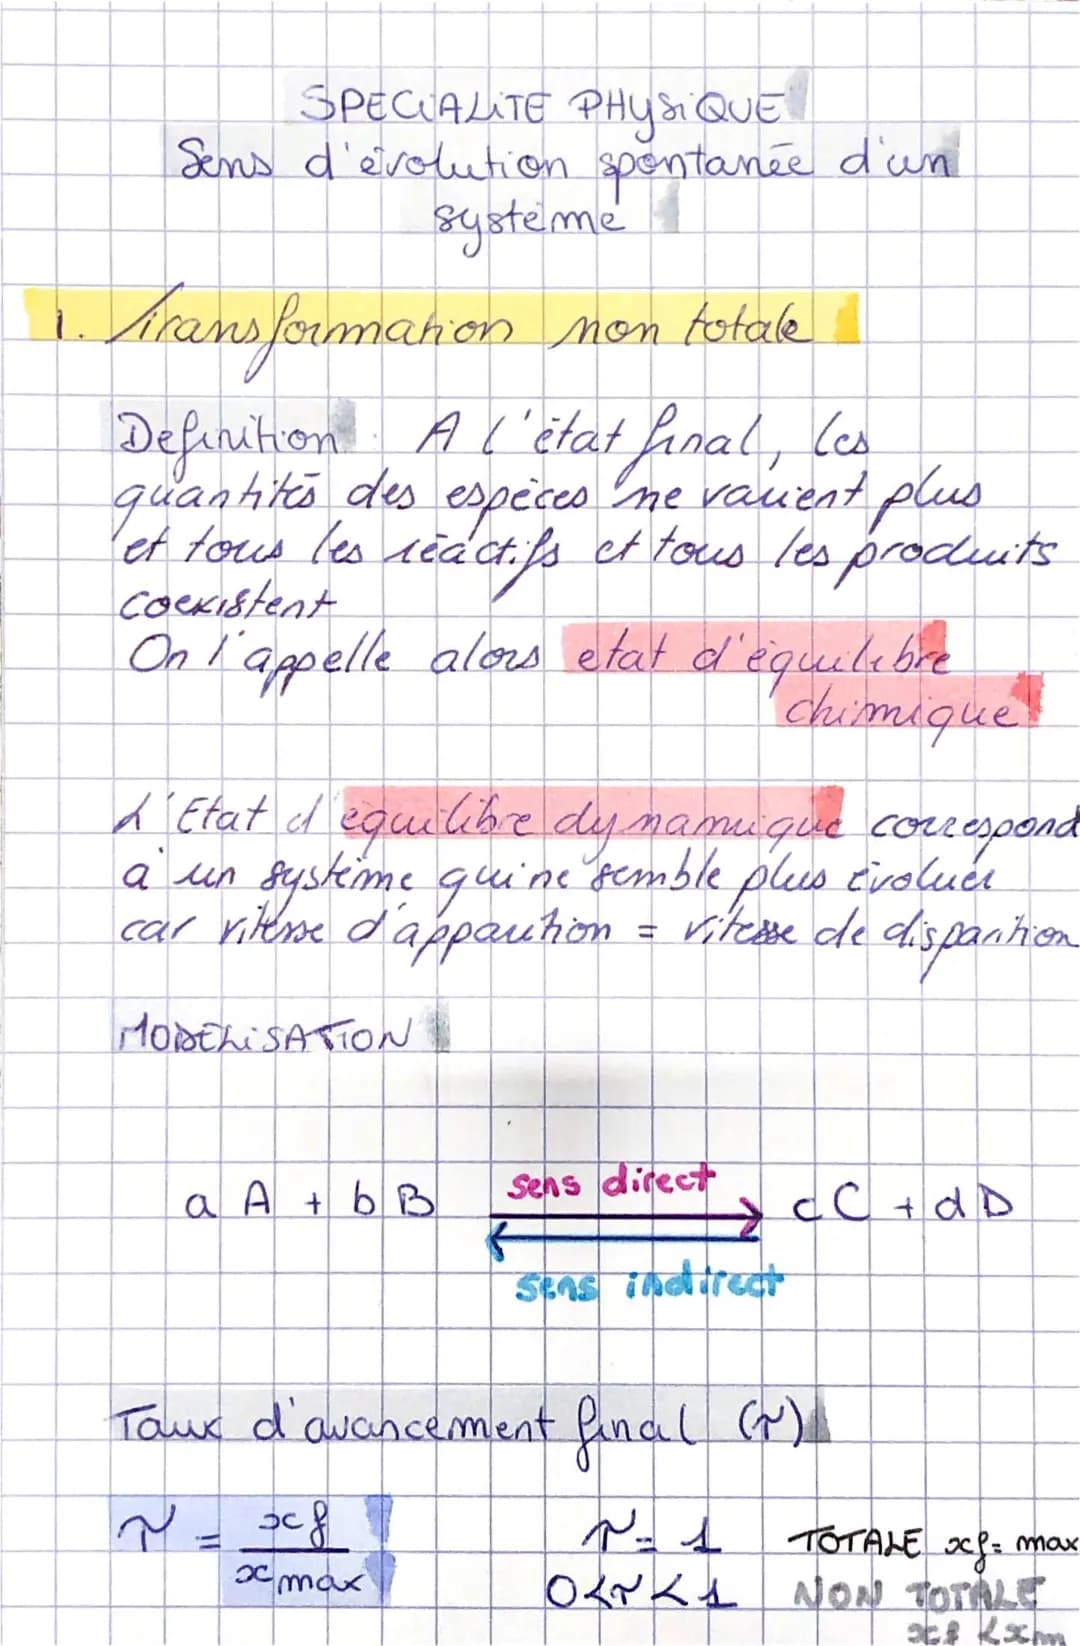 SPECIALITE PHYSIQUE
Sens d'évolution spontanée d'un
système
1. Transformation non totale
Definition : A l'état final, les
quantités des espèces ne varient plus
et tous les réactifs et tous les produits
coexistent
On l'appelle alors etat d'équilibre
chimique
L'Etat d'équilibre dynamique correspond
à un système qui ne semble plus évoluer
car vitesse d'apparition = vitesse de disparition
MODELISATION
sens direct
a A + b B ⇄ cC + dD
sens indirect
Taux d'avancement final (τ)
τ = xf / xmax
τ = 1 TOTALE xf = max
0<τ<1 NON TOTALE
xf < xm